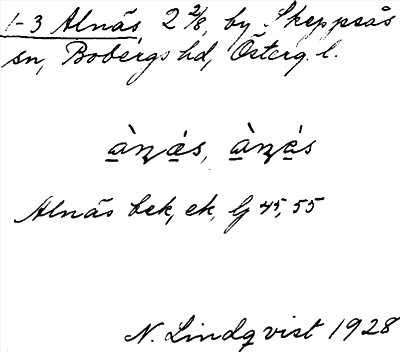 1-3 Alnäs, 2 2/8, by Skeppsås
sn, Bobergs hd, Österg. l.
Alnäs bek, ek, Lj 45, 55
N. Lindqvist 1928